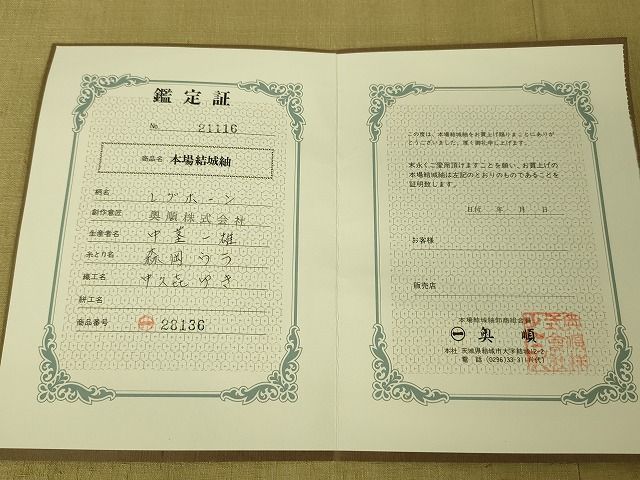 鑑定証
№ 21116
商品名 本場結城紬
柄名 レグホーン
創作意匠 奥順株式会社
生産者名 中茎一雄
糸とり名 森岡
織工名 中久喜ゆき
絣工名
商品番号 ㊀ 28136
この度は、本場結城紬をお買上げ賜りまことにありが
とうございました。厚く御礼申し上げます。
末永くご愛用頂けますことを願い、お買上げの
本場結城紬は左記のとおりのものであることを
証明致します。
日付 年 月 日
お客様
販売店
本場結城紬卸商組合員
㊀ 奥順
本社 茨城県結城市大字結城12-2
電話 (0296)33-3111(代)